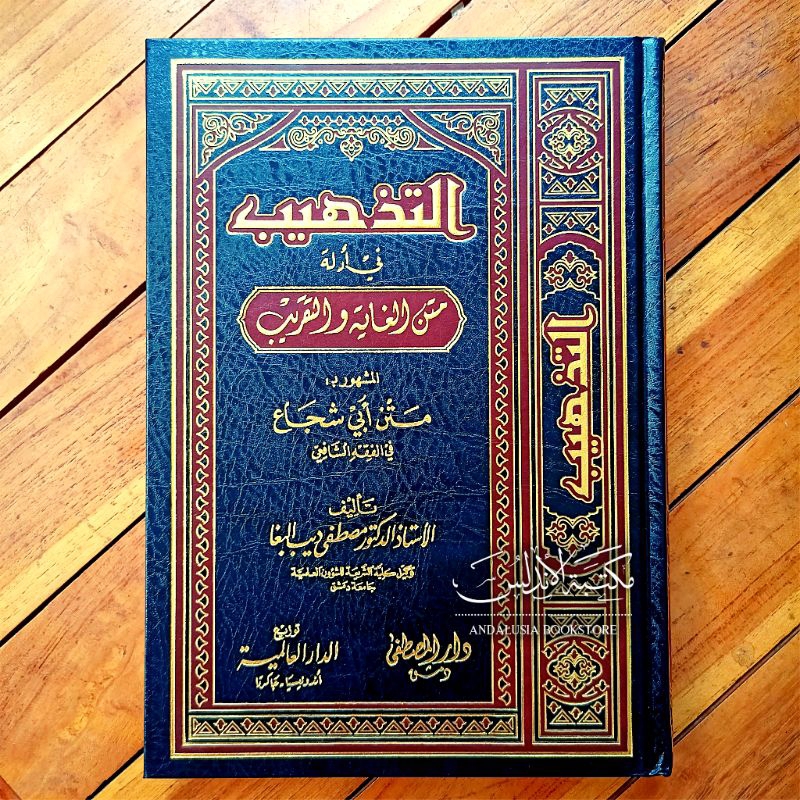 التذهيب
في أدلة
متن الغاية والتقريب
المشهور بـ:
متن أبي شجاع
في الفقه الشافعي
تأليف
الأستاذ الدكتور مصطفى ديب البغا
وكيل كلية الشريعة للشؤون العلمية
جامعة دمشق
دار المصطفى
دمشق
توزيع
الدار العالمية
أندونيسيا - جاكرتا
التذهيب
مكتبة الأندلس
ANDALUSIA BOOKSTORE